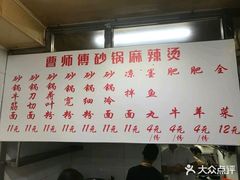 曹师傅砂锅麻辣烫
砂锅牛筋面 11元
砂锅刀切面 11元
砂锅荷叶面 11元
砂锅宽粉 11元
砂锅细粉 11元
砂锅冷面 11元
凉拌面 11元
墨鱼丸 4元
肥牛 4元
肥羊 4元
全菜 12元
大众点评